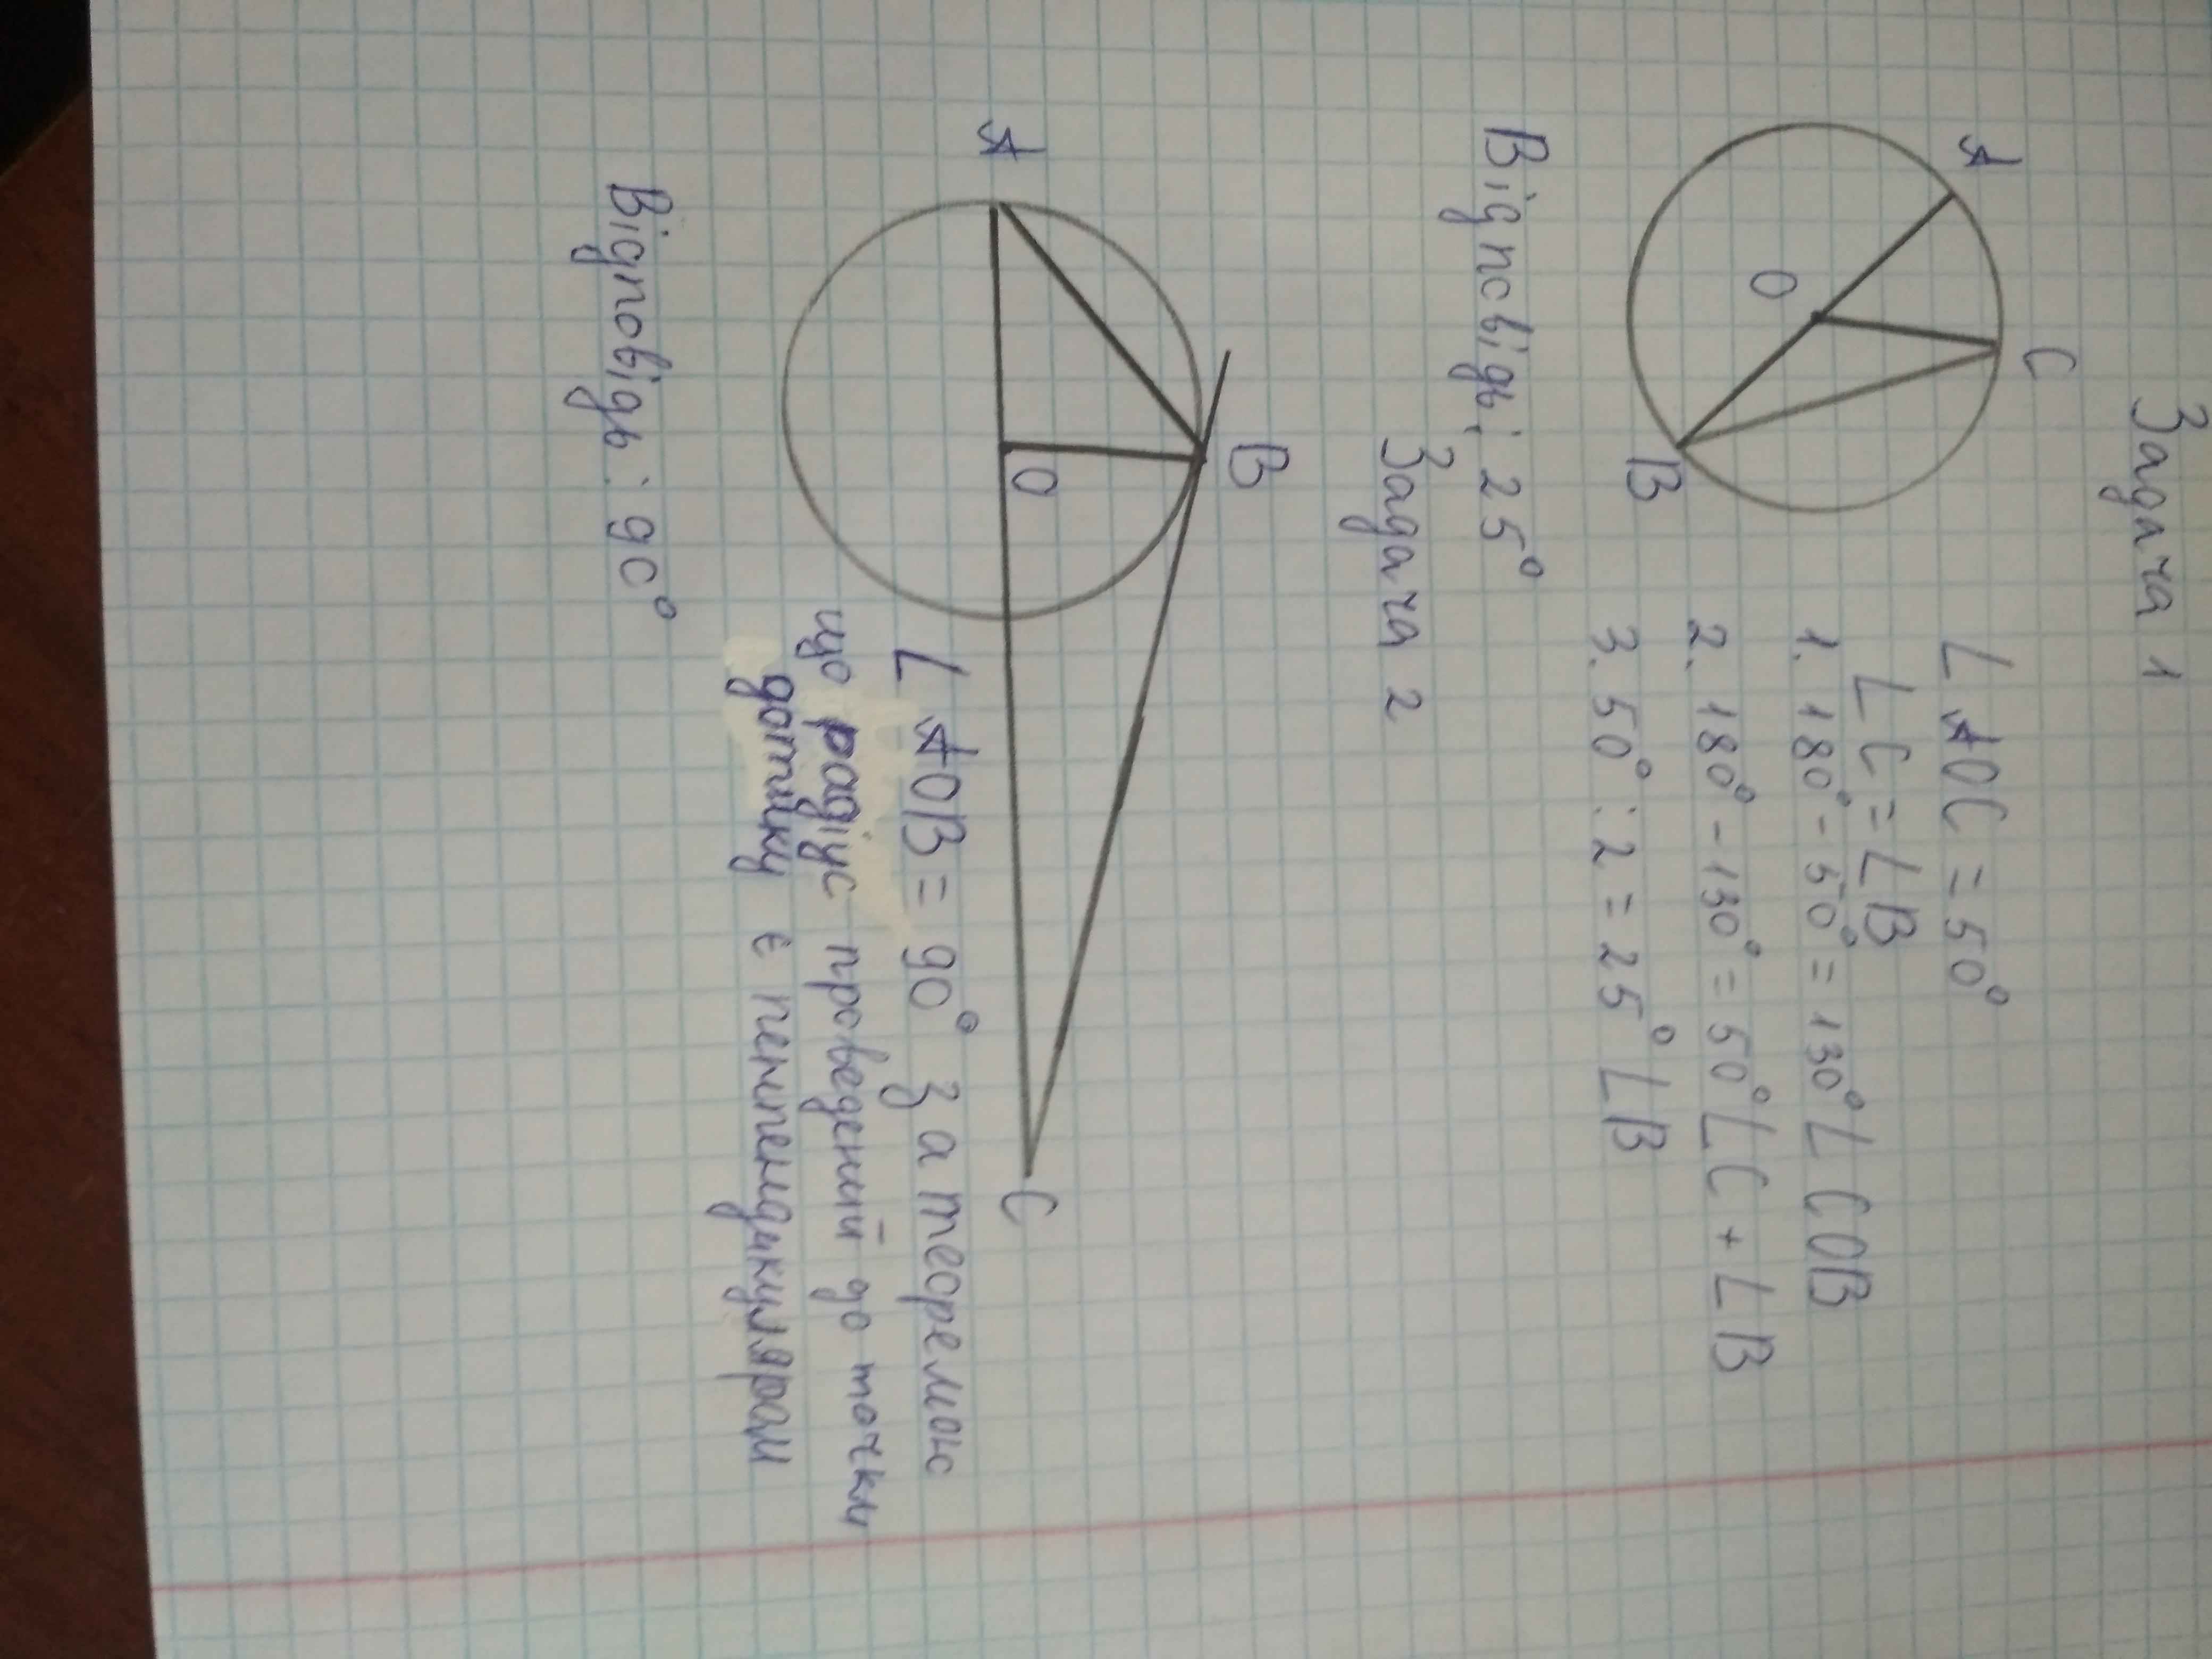 Задача 1
A
C
O
B
∠ AOC = 50°
∠ C = ∠ B
1. 180° - 50° = 130° ∠ COB
2. 180° - 130° = 50° ∠ C + ∠ B
3. 50° : 2 = 25° ∠ B
Відповідь: 25°
Задача 2
A
B
O
C
∠ AOB = 90° За теоремою
що радіус проведений до точки
дотику є перпендикуляром
Відповідь: 90°